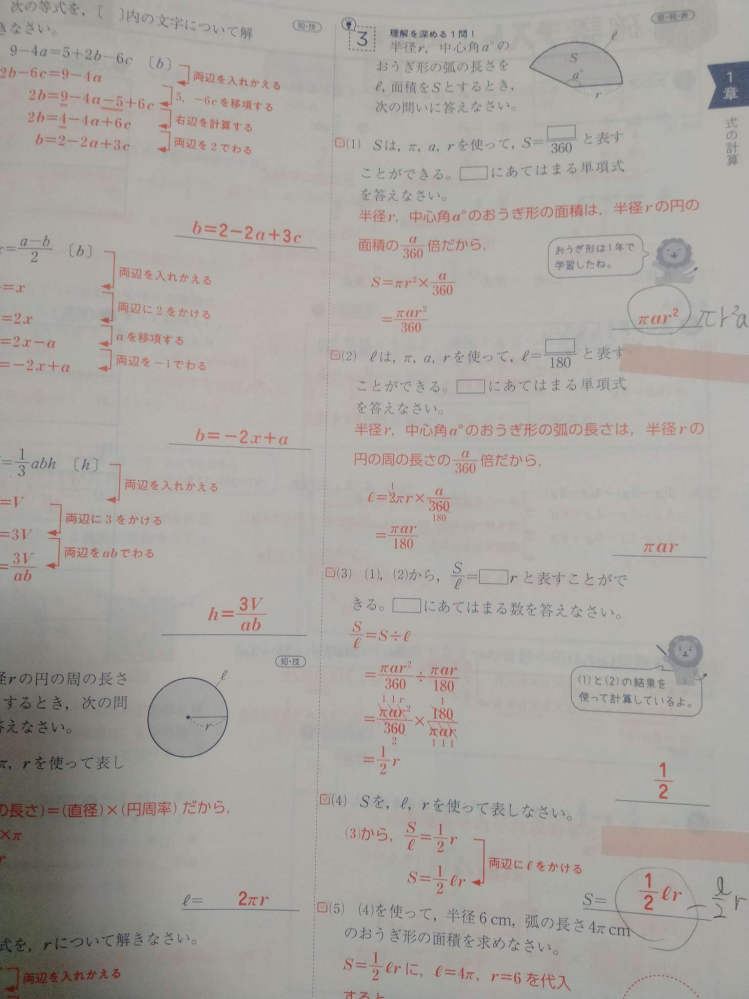 次の等式を,〔 〕内の文字について解
きなさい。
知・技
9−4a=5+2b−6c 〔b〕
2b−6c=9−4a
両辺を入れかえる
2b=9−4a−5+6c
5, −6cを移項する
2b=4−4a+6c
右辺を計算する
b=2−2a+3c
両辺を2でわる
b=2−2a+3c
=\frac{a−b}{2} 〔b〕
両辺を入れかえる
=x
両辺に2をかける
=2x
aを移項する
=2x−a
両辺を−1でわる
=−2x+a
b=−2x+a
=\frac{1}{3}abh 〔h〕
両辺を入れかえる
=V
両辺に3をかける
=3V
両辺をabでわる
=\frac{3V}{ab}
h=\frac{3V}{ab}
知・技
rの円の周の長さ
するとき,次の問
答えなさい。
ℓ
r
π, rを使って表し
の長さ)=(直径)×(円周率)だから,
×π
r
ℓ= 2πr
式を, rについて解きなさい。
両辺を入れかえる
3
理解を深める1問!
半径r, 中心角a°の
おうぎ形の弧の長さを
ℓ, 面積をSとするとき,
次の問いに答えなさい。
ℓ
S
a°
r
1章
式の計算
(1) Sは, π, a, rを使って, S=\frac{□}{360} と表す
ことができる。□にあてはまる単項式
を答えなさい。
半径r, 中心角a°のおうぎ形の面積は, 半径rの円の
面積の\frac{a}{360}倍だから,
おうぎ形は1年で
学習したね。
S=πr²×\frac{a}{360}
=\frac{πar²}{360}
πar² πr²a
(2) ℓは, π, a, rを使って, ℓ=\frac{□}{180} と表す
ことができる。□にあてはまる単項式
を答えなさい。
半径r, 中心角a°のおうぎ形の弧の長さは, 半径rの
円の周の長さの\frac{a}{360}倍だから,
1
ℓ=2πr×\frac{a}{360}
180
=\frac{πar}{180}
πar
(3) (1), (2)から, \frac{S}{ℓ}=□rと表すことがで
きる。□にあてはまる数を答えなさい。
\frac{S}{ℓ}=S÷ℓ
(1)と(2)の結果を
使って計算しているよ。
=\frac{πar²}{360}÷\frac{πar}{180}
1 1 r 1
=\frac{πar²}{360}×\frac{180}{πar}
2 1 1 1
=\frac{1}{2}r
\frac{1}{2}
(4) Sを, ℓ, rを使って表しなさい。
(3)から, \frac{S}{ℓ}=\frac{1}{2}r
両辺にℓをかける
S=\frac{1}{2}ℓr
S= \frac{1}{2}ℓr =\frac{ℓ}{2}r
(5) (4)を使って, 半径6cm, 弧の長さ4πcm
のおうぎ形の面積を求めなさい。
S=\frac{1}{2}ℓrに, ℓ=4π, r=6を代入
すると